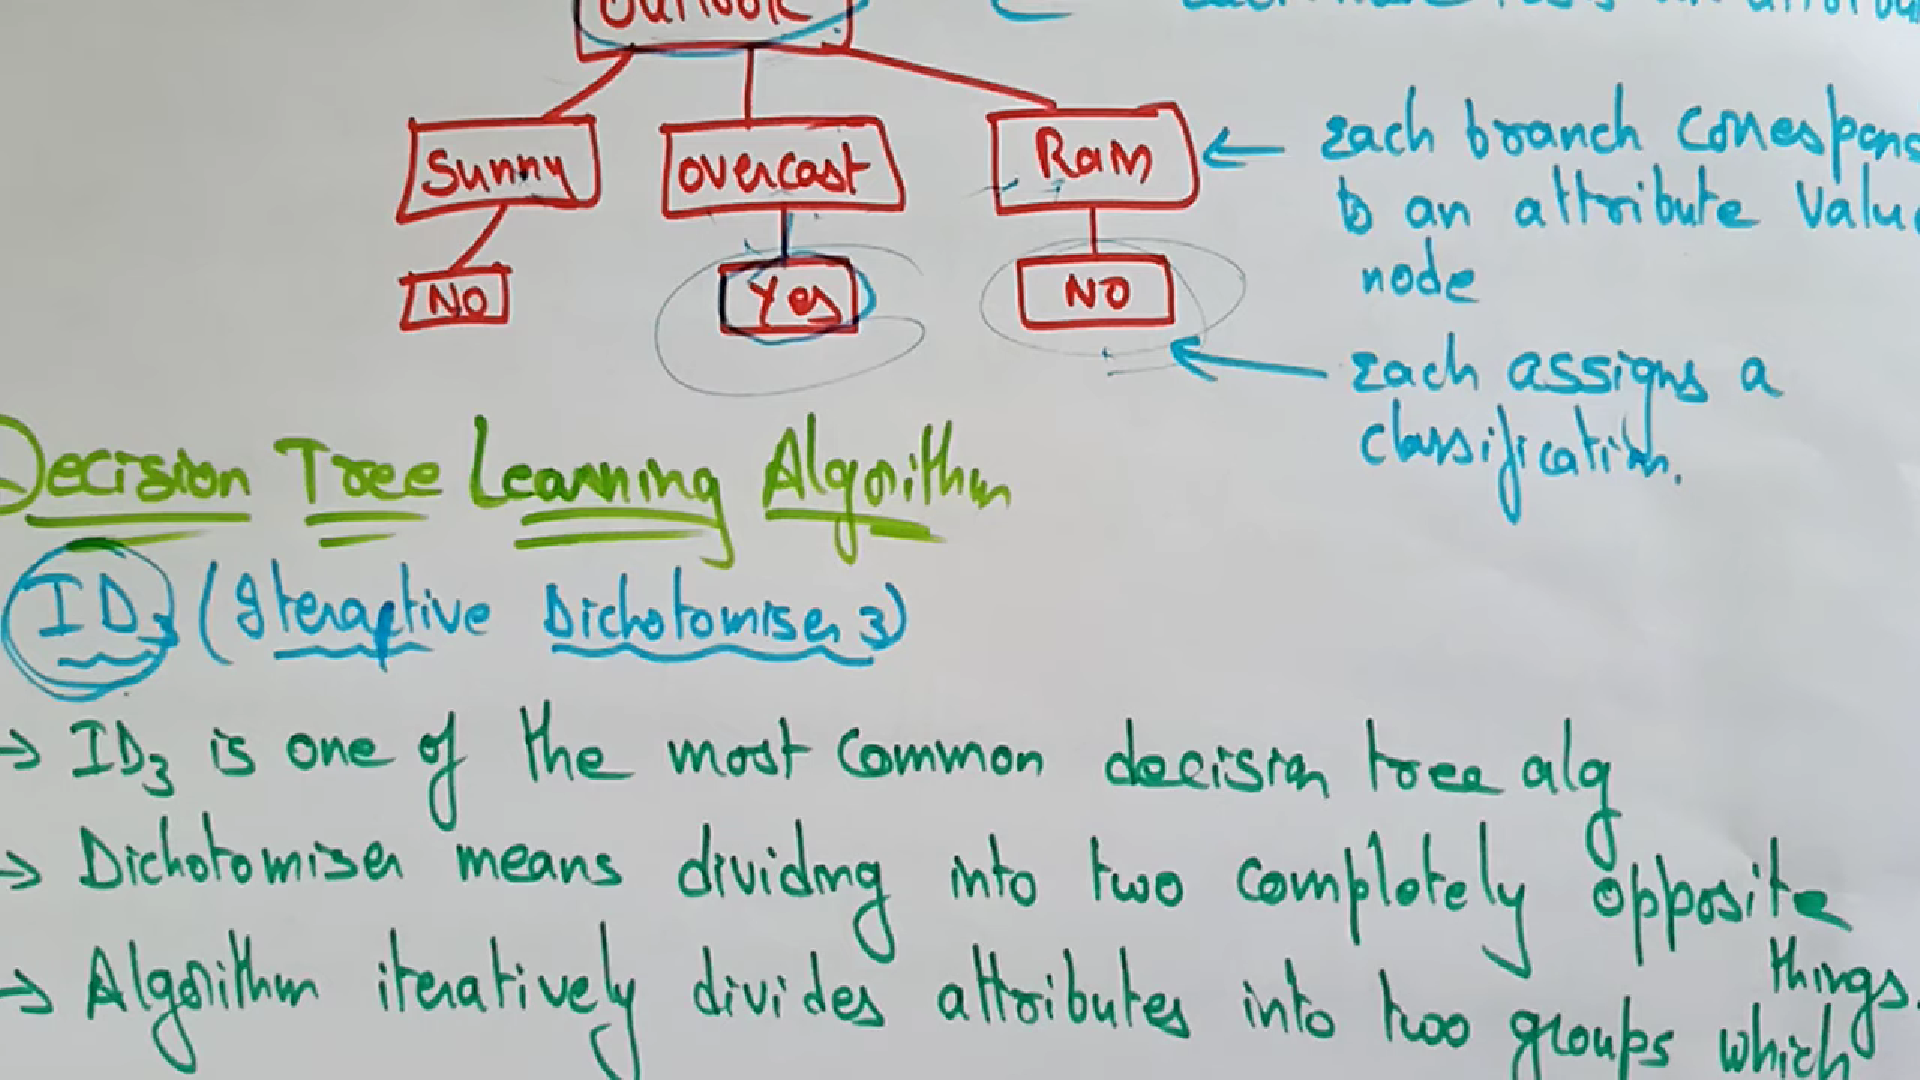 Outlook
Sunny overcast Rain
Each branch corresponds
to an attribute value
node
NO Yes NO
Each assigns a
classification.
Decision Tree Learning Algorithm
ID3 (Iteraptive Dichotomiser 3)
→ ID3 is one of the most common decision tree alg
→ Dichotomiser means dividing into two completely opposite
things.
→ Algorithm iteratively divides attributes into two groups which